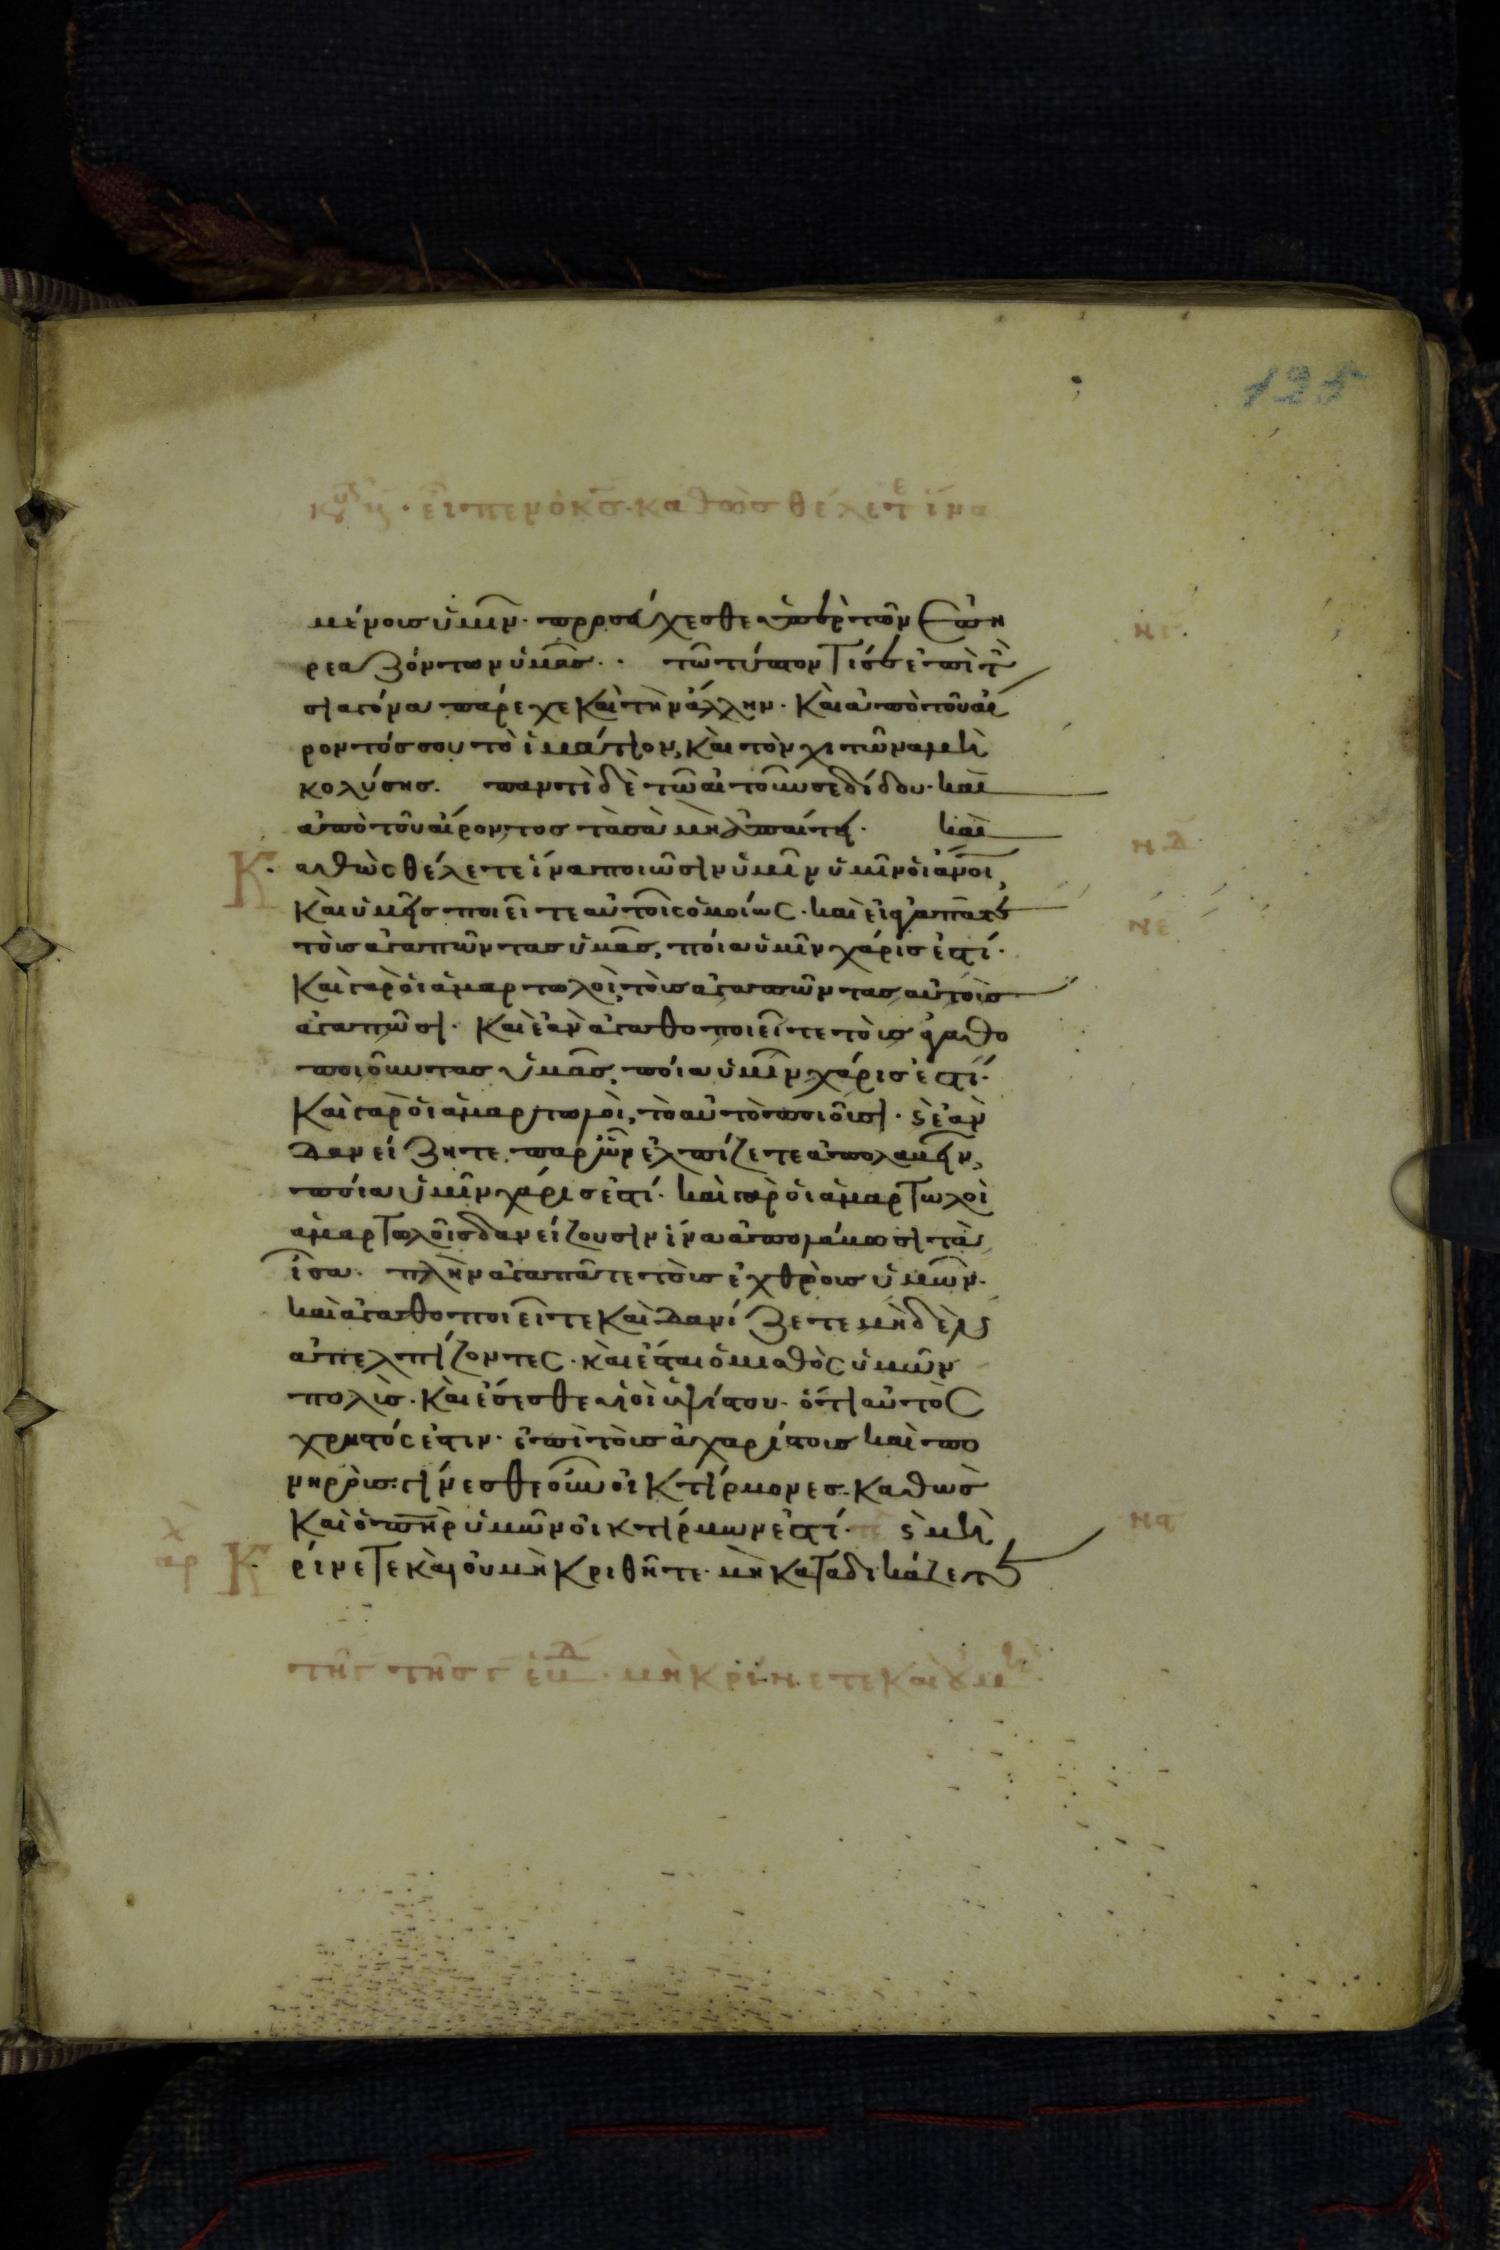 125
εἶπεν ὁ κς. καθὼς θέλετε ἵνα
μένοις ὑμῖν· προσεύχεσθε ὑπὲρ τῶν ἐπη
ρεαζόντων ὑμᾶς·· τῶ τύπτοντί σε ἐπὶ τὴ
σιαγόνα πάρεχε καὶ τὴν ἄλλην· καὶ ἀπὸ τοῦ αἴ
ροντός σου τὸ ἱμάτιον, καὶ τὸν χιτῶνα μὴ
κολύσης. παντὶ δὲ τῶ αἰτοῦν σε δίδου· καὶ
ἀπὸ τοῦ αἴροντος τὰ σὰ μὴ ἀπαίτει· καὶ
Κ αθὼς θέλετε ἵνα ποιῶσιν ὑμῖν ὑμῖν οἱ ἄνοι,
καὶ ὑμεῖς ποιεῖτε αὐτοῖς ὁμοίως· καὶ εἰ ἀγαπᾶτε
τοὶς ἀγαπῶντας ὑμᾶς, ποία ὑμῖν χάρις ἐστί·
καὶ γὰρ οἱ ἁμαρτωλοὶ, τοὶς ἀγαπῶντας αὐτοὶς
ἀγαπῶσι· καὶ ἐὰν ἀγαθοποιεῖτε τοὶς ἀγαθο
ποιοῦντας ὑμᾶς, ποία ὑμῖν χάρις ἐστί·
καὶ γὰρ οἱ ἁμαρτωλοὶ, τὸ αὐτὸ ποιοῦσι· ϛ ἐὰν
δανείζητε παρ' ὧν ἐλπίζετε ἀπολαβεῖν,
ποία ὑμῖν χάρις ἐστί· καὶ γὰρ οἱ ἁμαρτωλοὶ
ἁμαρτωλοῖς δανείζουσιν ἵνα ἀπολάβωσι τὰ
ἴσα· πλὴν ἀγαπᾶτε τοὶς ἐχθροὶς ὑμῶν·
καὶ ἀγαθοποιεῖτε καὶ δανίζετε μηδὲν
ἀπελπίζοντες· καὶ ἔσται ὁ μισθὸς ὑμῶν
πολὶς· καὶ ἔσεσθε υἱοὶ ὑψίστου· ὅτι αὐτὸς
χρηστός ἐστιν· ἐπὶ τοὶς ἀχαρίστοις καὶ πο
νηρὶς· γίνεσθε οὖν οἰκτίρμονες· καθὼς
καὶ ὁ πηρ ὑμῶν οἰκτίρμων ἐστί· ϛ μὴ
Κ ρίνετε καὶ οὐ μὴ κριθῆτε· μὴ καταδικάζετε
μὴ κρίνετε καὶ οὐ μὴ